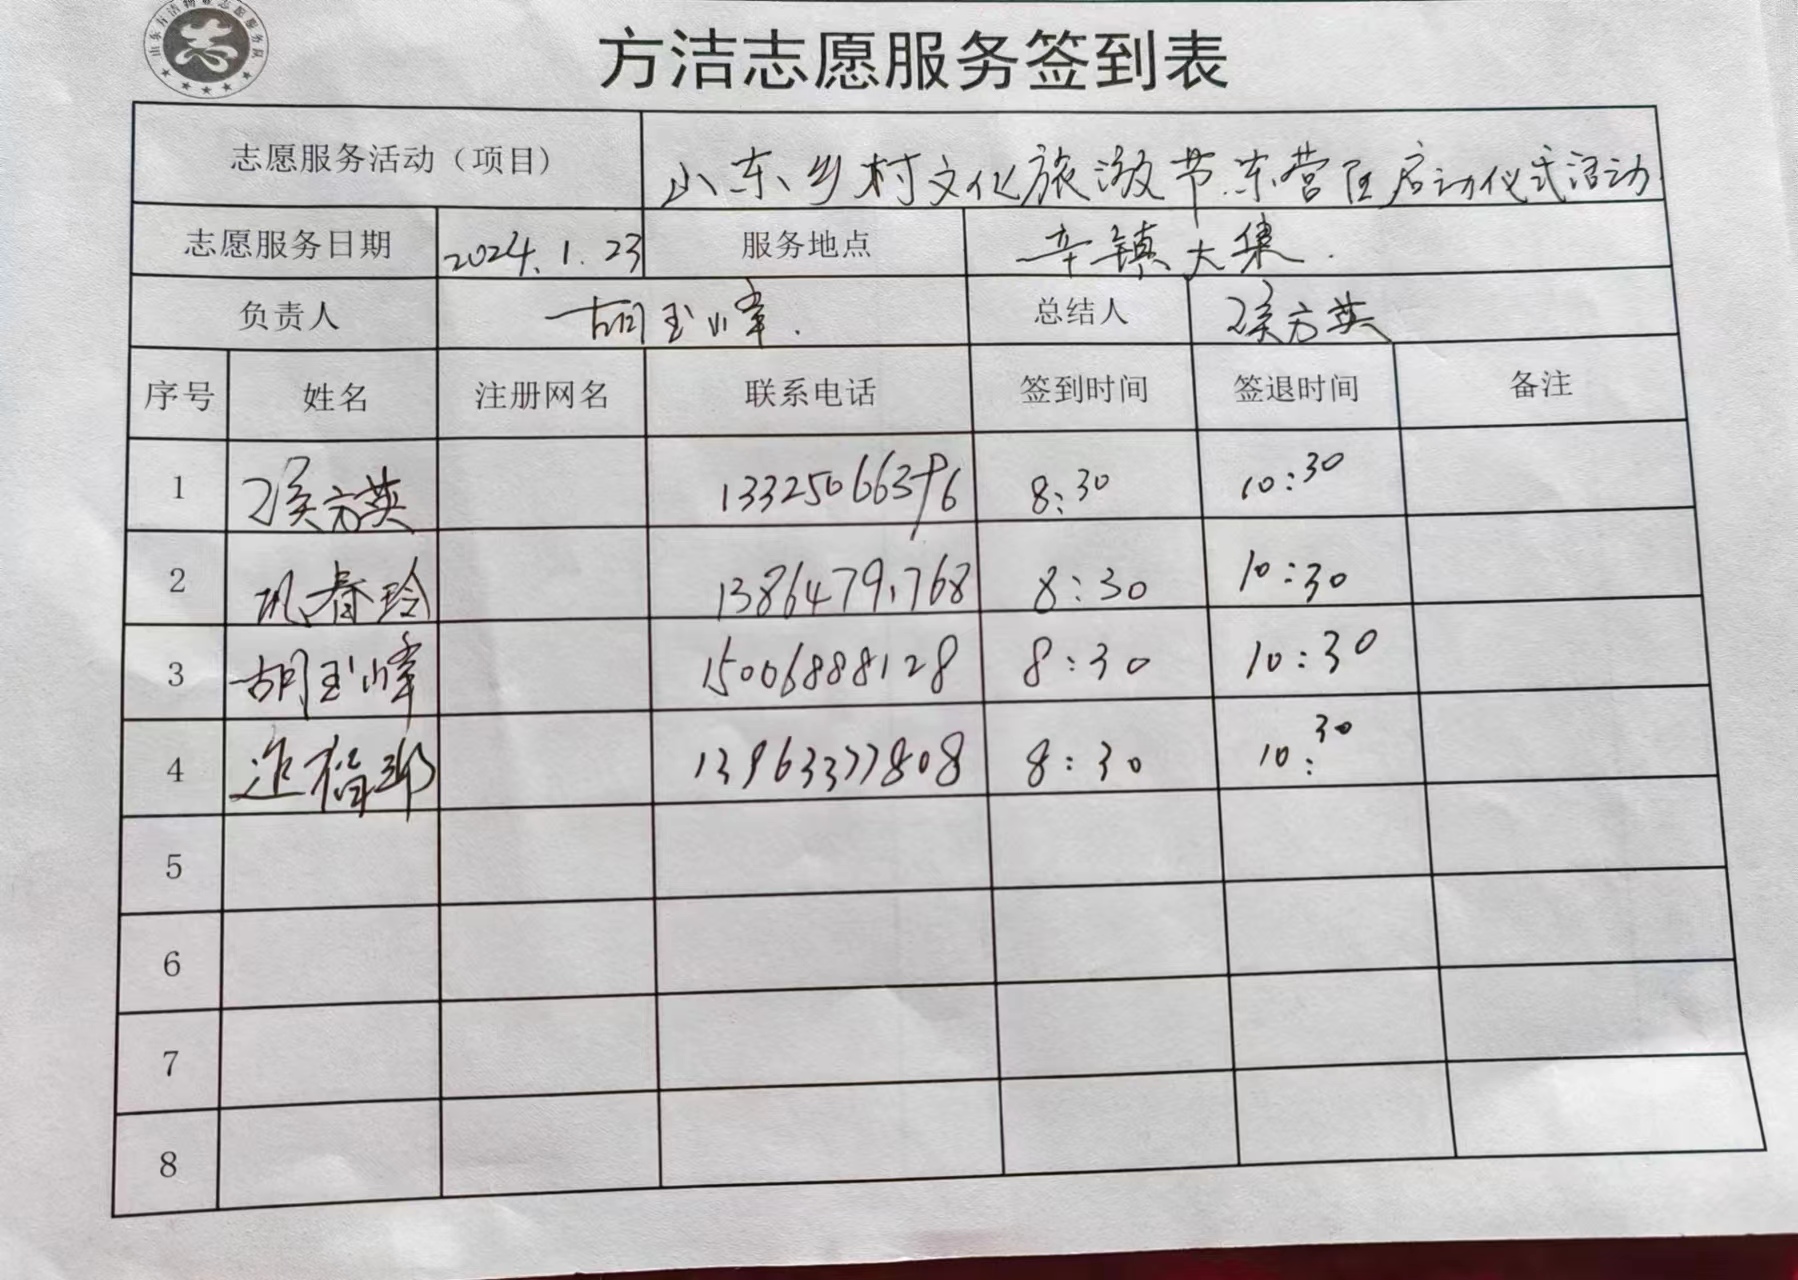 山东方洁物业志愿服务队
志
方洁志愿服务签到表
志愿服务活动（项目） 山东乡村文化旅游节东营区启动仪式活动
志愿服务日期 2024.1.23 服务地点 辛镇大集.
负责人 胡玉峰. 总结人 侯方英
序号 姓名 注册网名 联系电话 签到时间 签退时间 备注
1 侯方英 8:30 10:30
2 巩春玲 8:30 10:30
3 胡玉峰 15006888128 8:30 10:30
4 8:30 10:30
5
6
7
8